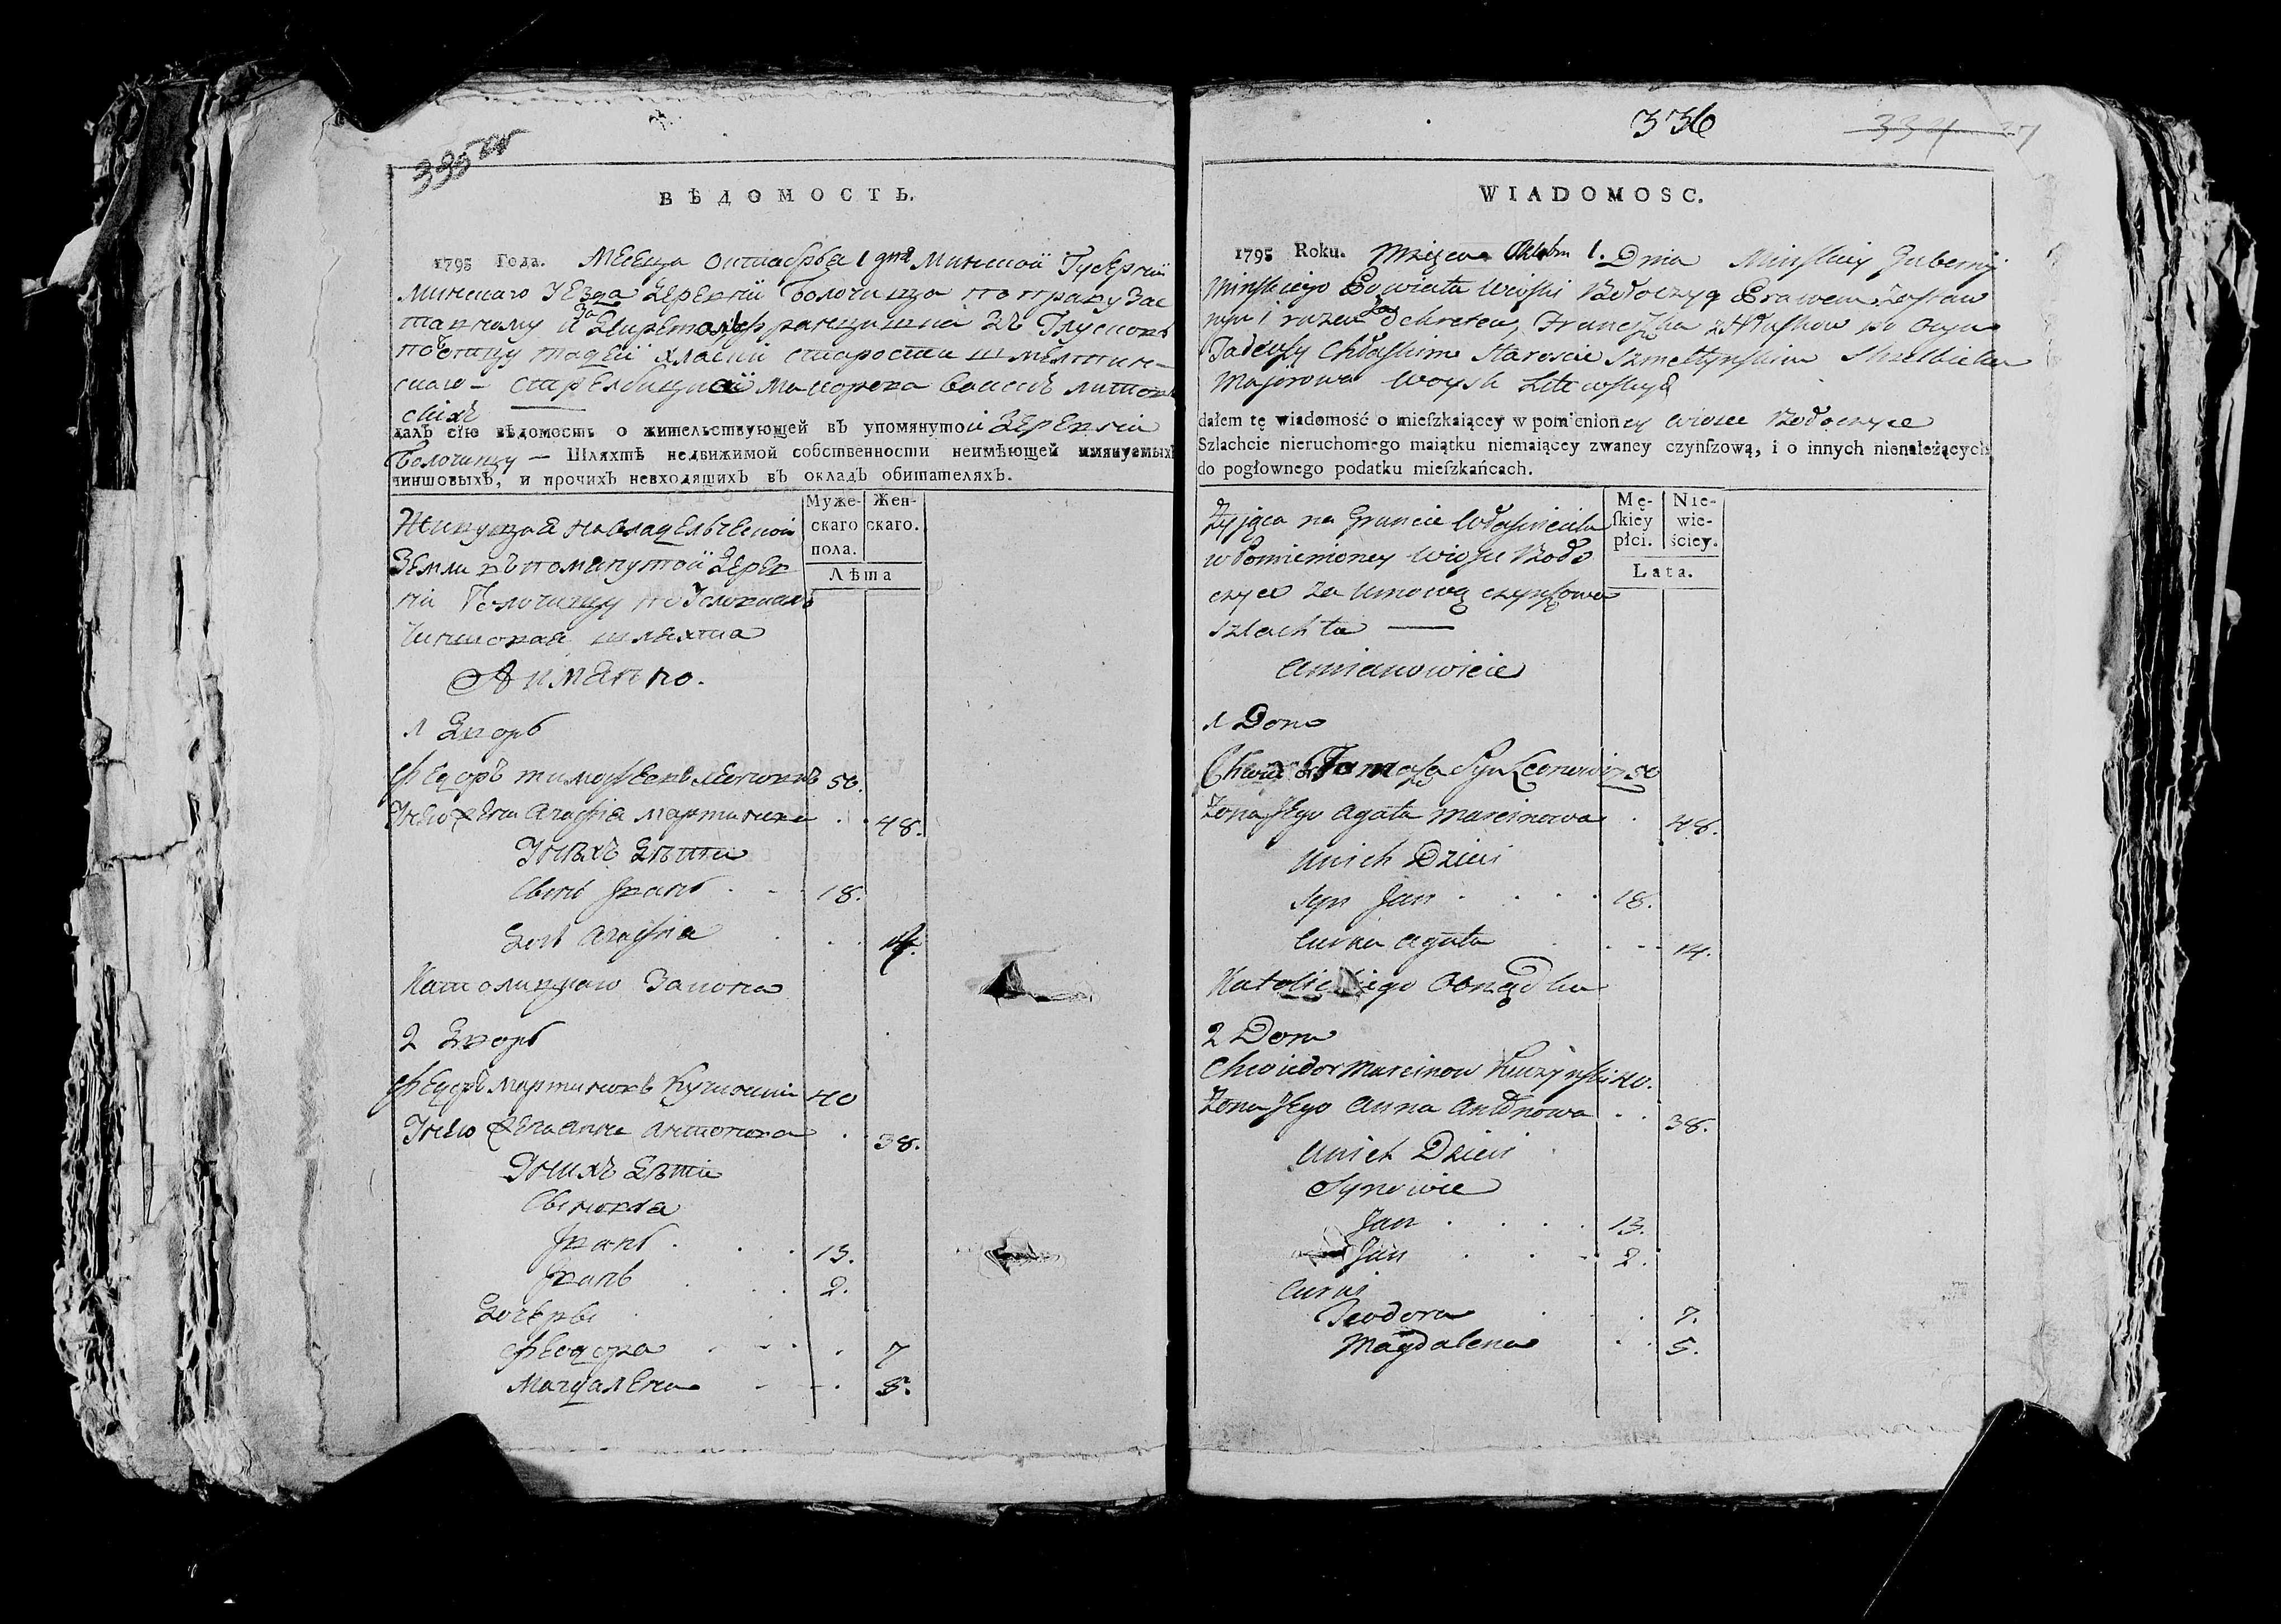 395
ВѢДОМОСТЬ.
1795 Года. Месеца октабръа 1 дня Минской Губернии
Минскаго уезда деревни Болочица по праву зас
тавному и за декретом
Тадеи Хласки старости шмелтин-
скаго - маиорова воискъ литов
скихъ
далъ сїю вѣдомость о жительствующей въ упомянутои деревни
Болочицу — Шляхтѣ недвижимой собственности неимѣющей имянуемыхъ
чиншовыхъ, и прочихъ невходящихъ въ окладъ обитателяхъ.
Муже- Жен-
скаго скаго.
пола.
Лѣта
Живуща на владельческой
земли въ помянутой дерев
ни Болочицу по условиамъ
чиншовая шляхта
А имянно.
1 Дворъ
Федоръ тимофеевъ леоновъ 50.
У него жена агафиа мартинова 48.
У нихъ дѣти
Сынъ Иванъ 18.
Дочь агафиа 14.
Католицкаго закона
2 Дворъ
Федоръ мартиновъ Кучинскии 40
У него жена анна антонова 38.
У нихъ дѣти
Сыновья
Иванъ 13.
Иванъ 2.
Дочеры
Феодора 7
Магдалена 5.
336
334 27
WIADOMOSC.
1795 Roku. Miesięca Oktobra 1. Dnia Minskiey Gubernij
Minskiego Powiatu wioski Bołoczyc Prawem zastaw
nym i razem za dekretem, Franciszka
Tadeuszu Chłaskim Staroscie Szmeltynskim Strzelbicka
Majorowa Woysk Litewskich
dałem tę wiadomość o mieſzkaiącey w pomienioney wiosce Bołoczyce
Szlachcie nieruchomego maiątku niemaiącey zwaney czynſzową, i o innych nienależących
do pogłownego podatku mieſzkańcach.
Mę- Nie-
ſkiey wie-
płci. ściey.
Lata.
Żyjąca na Gruncie Właściciela
w Pomienioney wiosce Boło
czyce za umową czynszowa
szlachta —
Amianowicie
1 Dom
Chwiedor Tomasza Syn Leonowicz 50
Żona Jego Agata Marcinowa 48.
Unich Dzieci
Syn Jan 18.
Curka Agata 14.
Katolickiego Obrządku
2 Dom
Chwiedor Marcinow Kuczynski 40.
Żona Jego Anna Antonowa 38.
Unich Dzieci
Synowie
Jan 13.
Jan 2.
Curki
Teodora 7.
Magdalena 5.